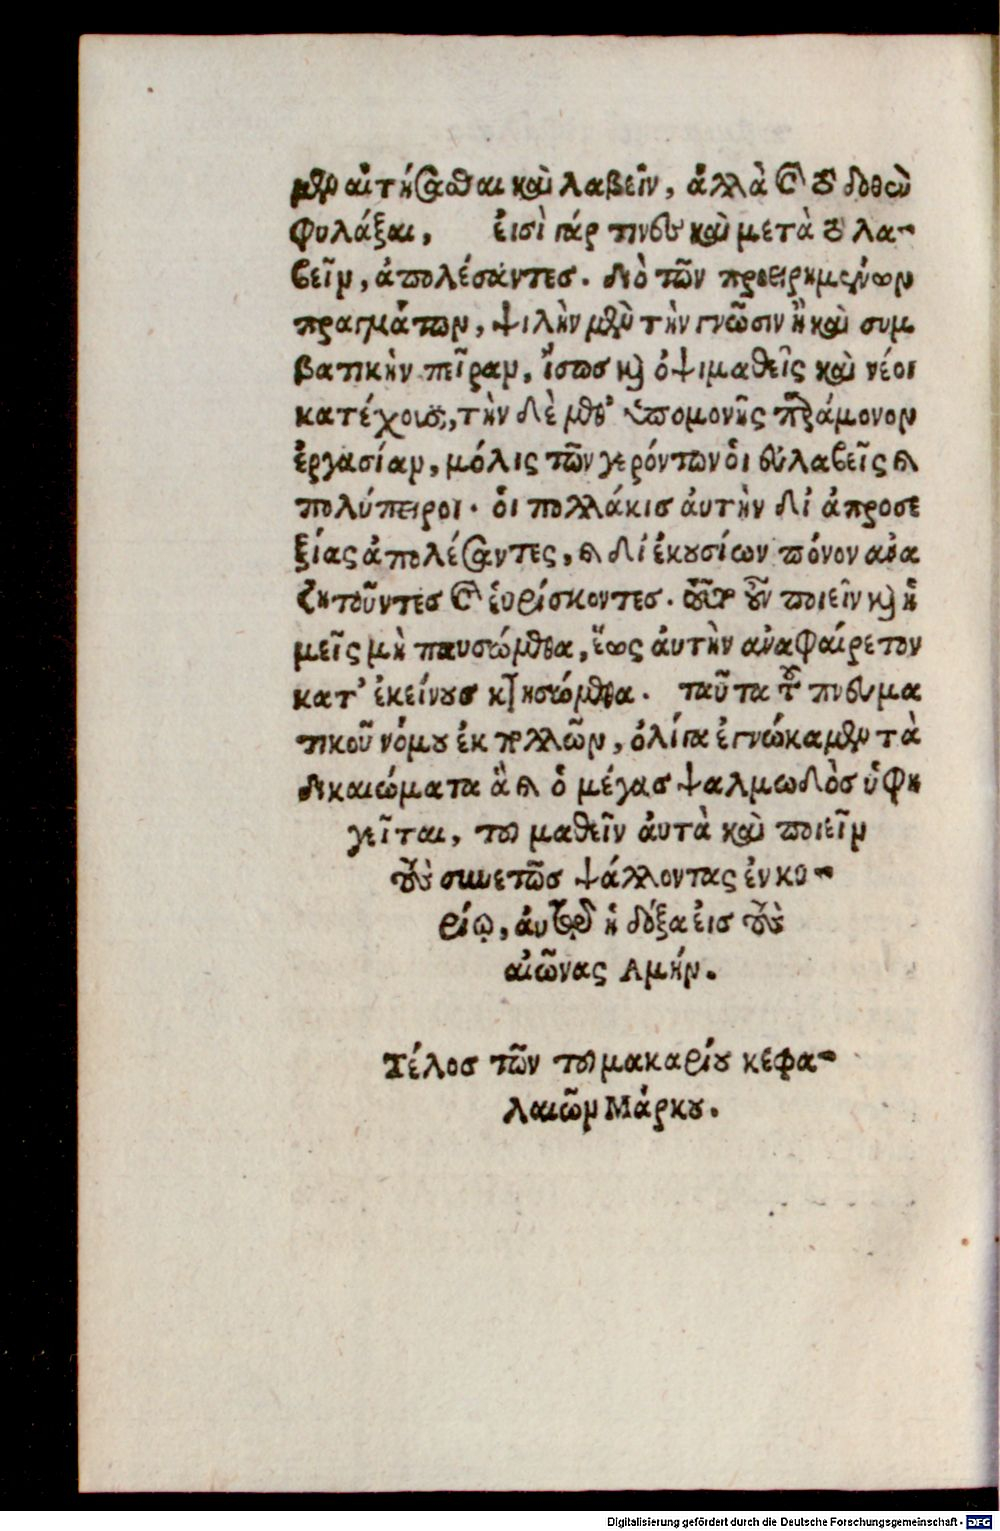 μὲν αἰτήσασθαι καὶ λαβεῖν, ἀλλὰ καὶ τὸ δοθὲν
φυλάξαι, εἰσὶ γάρ τινες καὶ μετὰ τὸ λα-
βεῖν, ἀπολέσαντες. διὸ τῶν προειρημένων
πραγμάτων, ψιλὴν μὲν τὴν γνῶσιν ἢ καὶ συμ
βατικὴν πεῖραν, ἴσως καὶ ὀψιμαθεῖς καὶ νέοι
κατέχουσι, τὴν δὲ μεθ' ὑπομονῆς παράμονον
ἐργασίαν, μόλις τῶν γερόντων οἱ εὐλαβεῖς καὶ
πολύπειροι. οἱ πολλάκις ἀυτὴν δι ἀπροσε
ξίας ἀπολέσαντες, καὶ δι ἑκουσίων πόνον ανα
ζητοῦντες καὶ ἑυρίσκοντες. τοῦτο οὖν ποιεῖν καὶ ἡ
μεῖς μὴ παυσώμεθα, ἕως ἀυτὴν αναφαίρετον
κατ' ἐκείνους κτησώμεθα. ταῦτα τοῦ πνευμα
τικοῦ νόμου ἐκ πολλῶν, ὀλίγα ἐγνώκαμεν τὰ
δικαιώματα ἃ καὶ ὁ μέγας ψαλμωδὸς ὑφη
γεῖται, του μαθεῖν ἀυτὰ καὶ ποιεῖν
τοὺς συνετῶς ψάλλοντας ἐν κυ-
ρίῳ, ἀυτῷ ἡ δόξα ἐις τοὺς
αἰῶνας Αμήν.
Τέλος τῶν του μακαρίου κεφα-
λαιῶν Μάρκου.
Digitalisierung gefördert durch die Deutsche Forschungsgemeinschaft - DFG